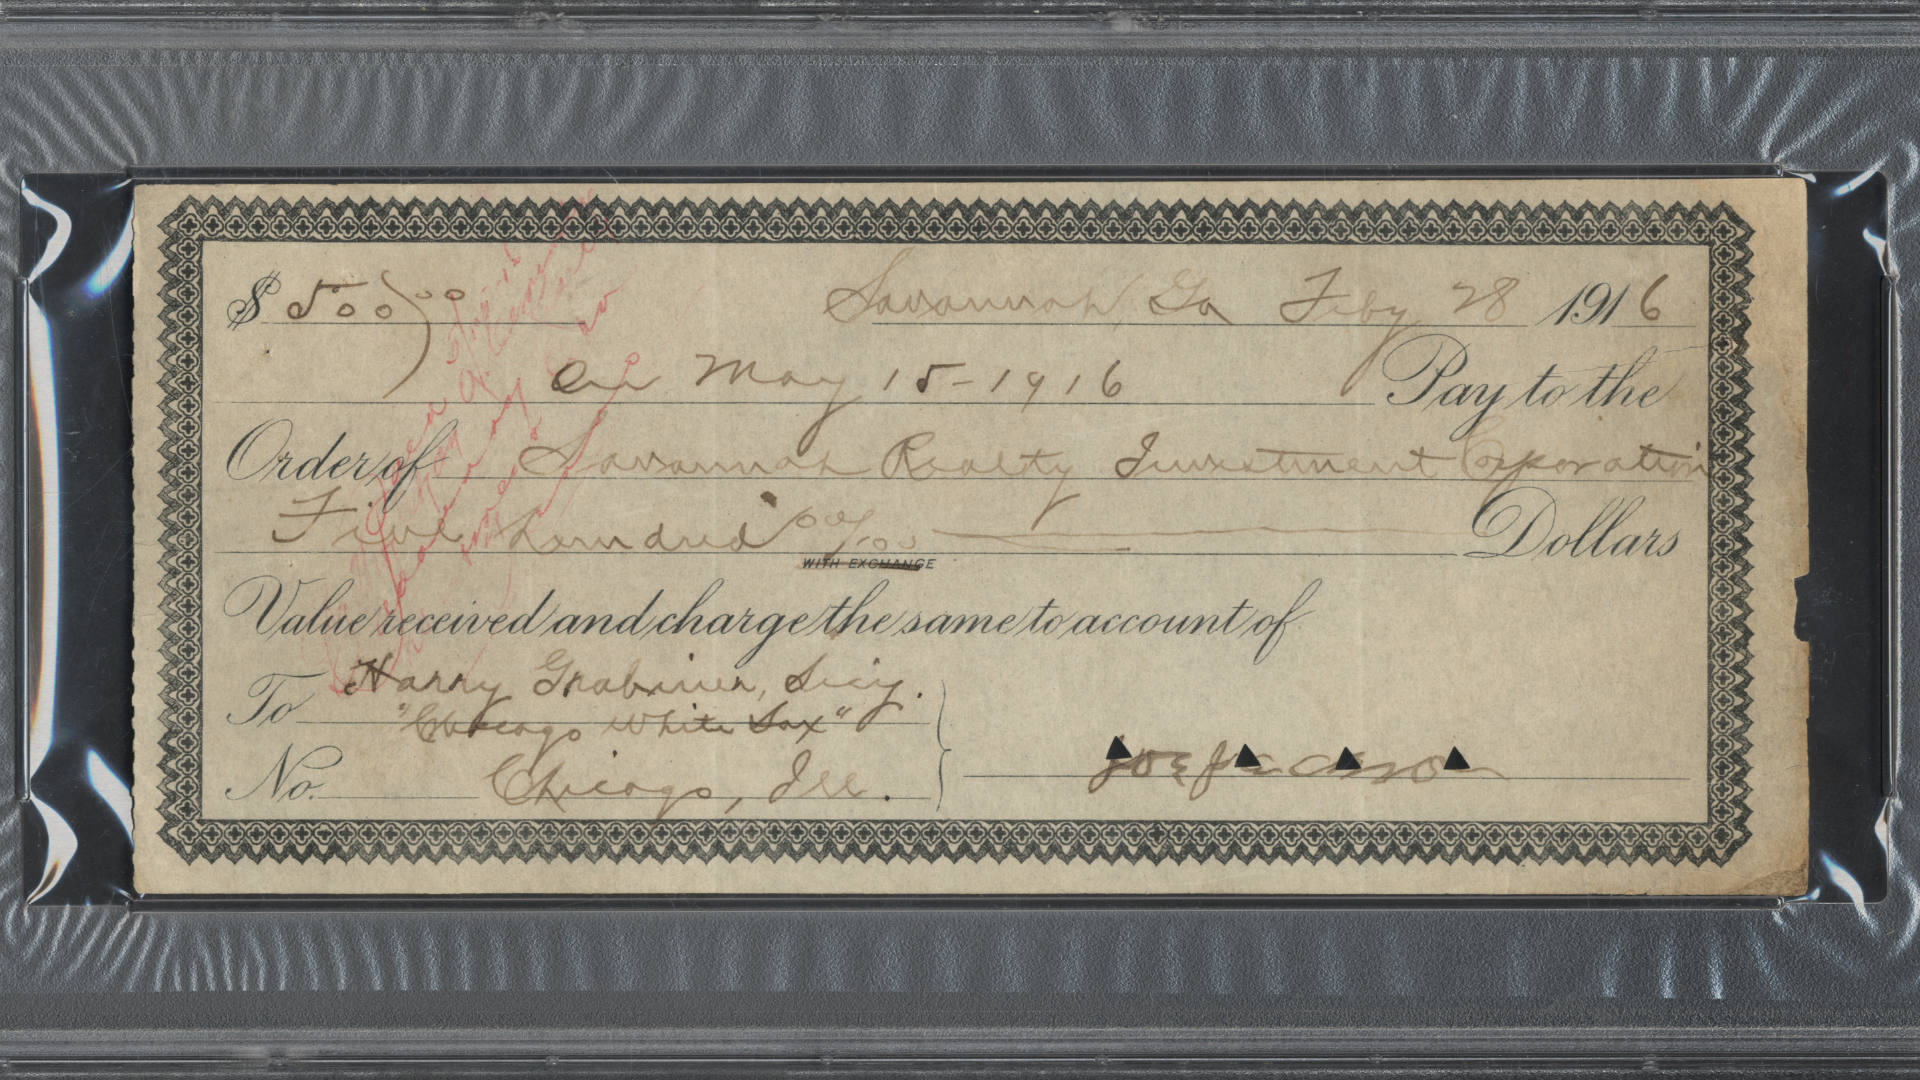 $ 500 00 Savannah, Ga Feby 28 1916
On May 15-1916 Pay to the
Order of Savannah Realty Investment Corporation
Five hundred 00/100 Dollars
WITH EXCHANGE
Value received and charge the same to account of
To Harry Grabiner, Secy.
"Chicago White Sox"
No. Chicago, Ill.
Joe Jackson